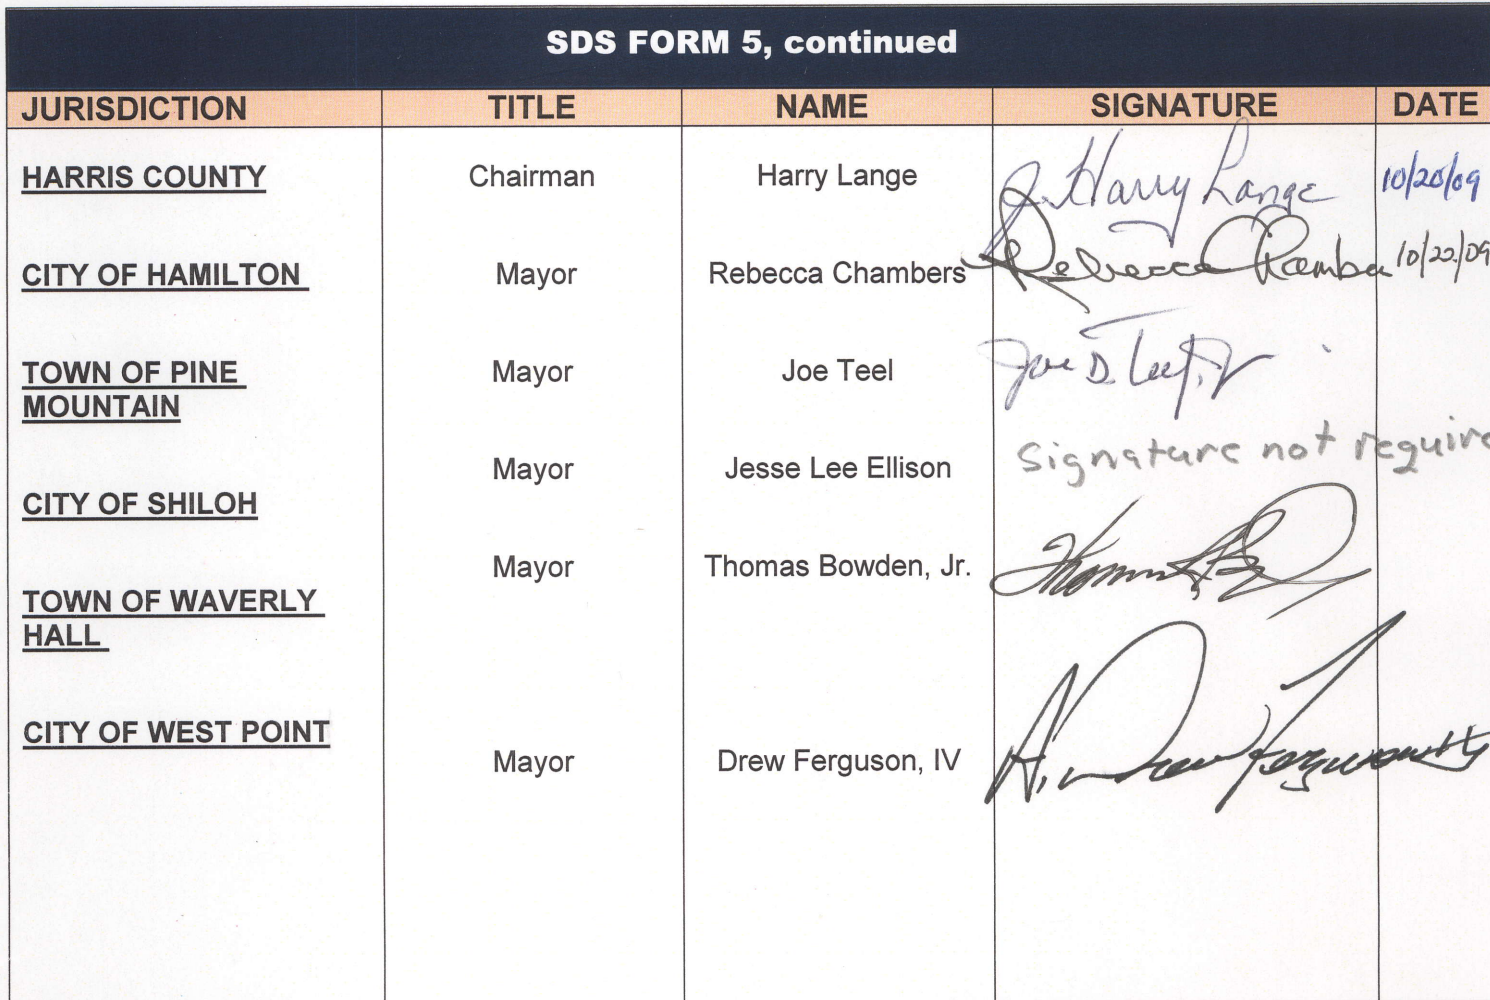 SDS FORM 5, continued
JURISDICTION TITLE NAME SIGNATURE DATE
HARRIS COUNTY Chairman Harry Lange J. Harry Lange 10/20/09
CITY OF HAMILTON Mayor Rebecca Chambers Rebecca Chambe 10/22/09
TOWN OF PINE Mayor Joe Teel Joe D. Teel, Jr
MOUNTAIN
Mayor Jesse Lee Ellison Signature not require
CITY OF SHILOH
Mayor Thomas Bowden, Jr. Thomas
TOWN OF WAVERLY
HALL
CITY OF WEST POINT
Mayor Drew Ferguson, IV A. Drew Ferguson IV